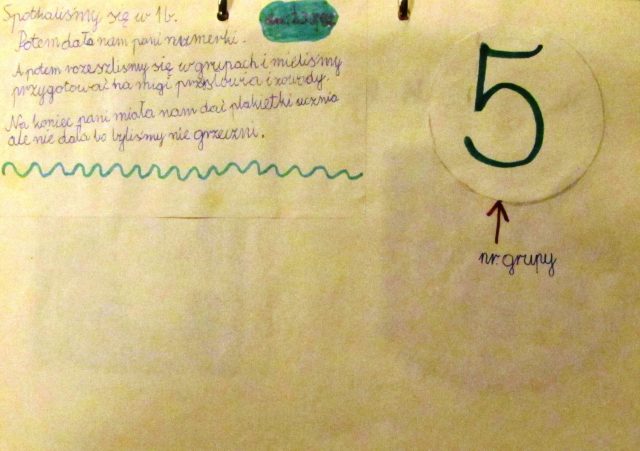 Spotkaliśmy się w 1b.
Potem dała nam pani numerki.
A potem rozeszliśmy się w grupach i mieliśmy
przygotować na migi przysłowia i zawody.
Na koniec pani miała nam dać plakietki ucznia
ale nie dała bo byliśmy nie grzeczni.
5
nr. grupy